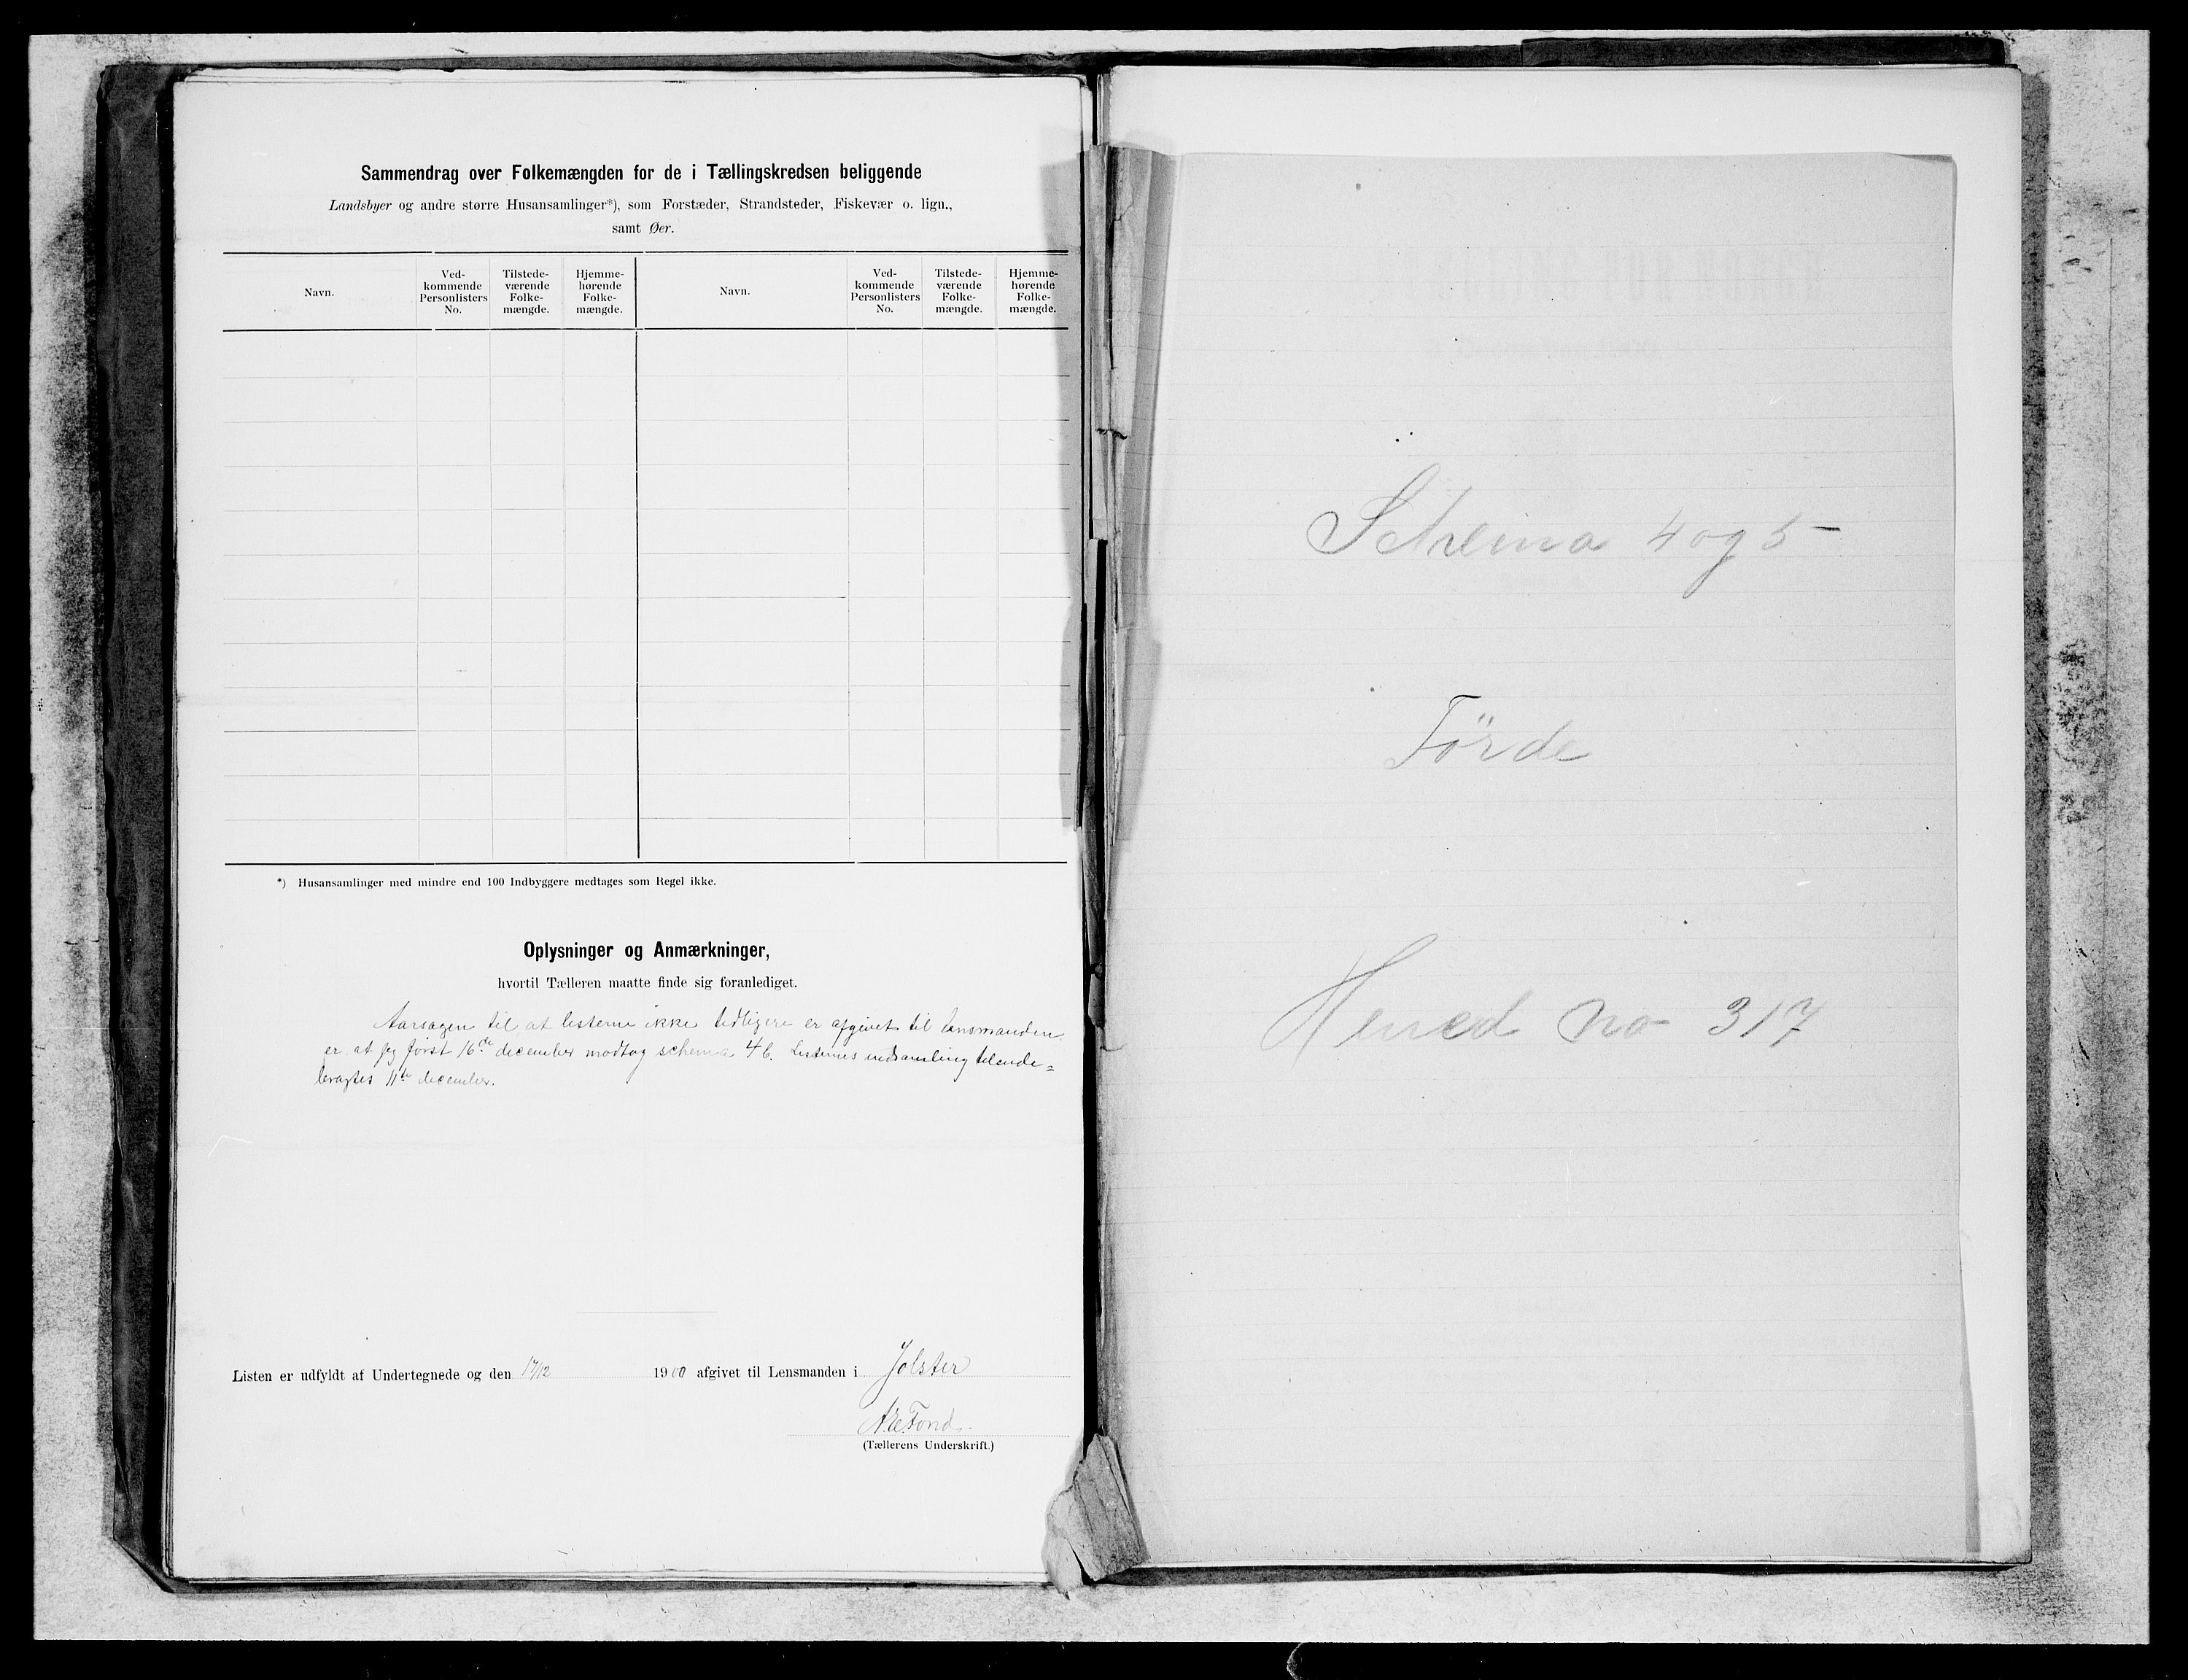 Sammendrag over Folkemængden for de i Tællingskredsen beliggende
Landsbyer og andre større Husansamlinger*), som Forstæder, Strandsteder, Fiskevær o. lign.,
samt Øer.
Navn.
Ved-
kommende
Personlisters
No.
Tilstede-
værende
Folke-
mængde.
Hjemme-
hørende
Folke-
mængde.
Navn.
Ved-
kommende
Personlisters
No.
Tilstede-
værende
Folke-
mængde.
Hjemme-
hørende
Folke-
mængde.
*) Husansamlinger med mindre end 100 Indbyggere medtages som Regel ikke.
Oplysninger og Anmærkninger,
hvortil Tælleren maatte finde sig foranlediget.
Aarsagen til at listerne ikke tidligere er afgivet til lensmanden
er at jeg først 16de december modtog schema 4 b. Listernes indsamling tilende=
bragtes 11te december.
Listen er udfyldt af Undertegnede og den 17/12 1900 afgivet til Lensmanden i Jølster
Fond.
(Tællerens Underskrift.)
Schema 4 og 5
Förde
Herred no 317